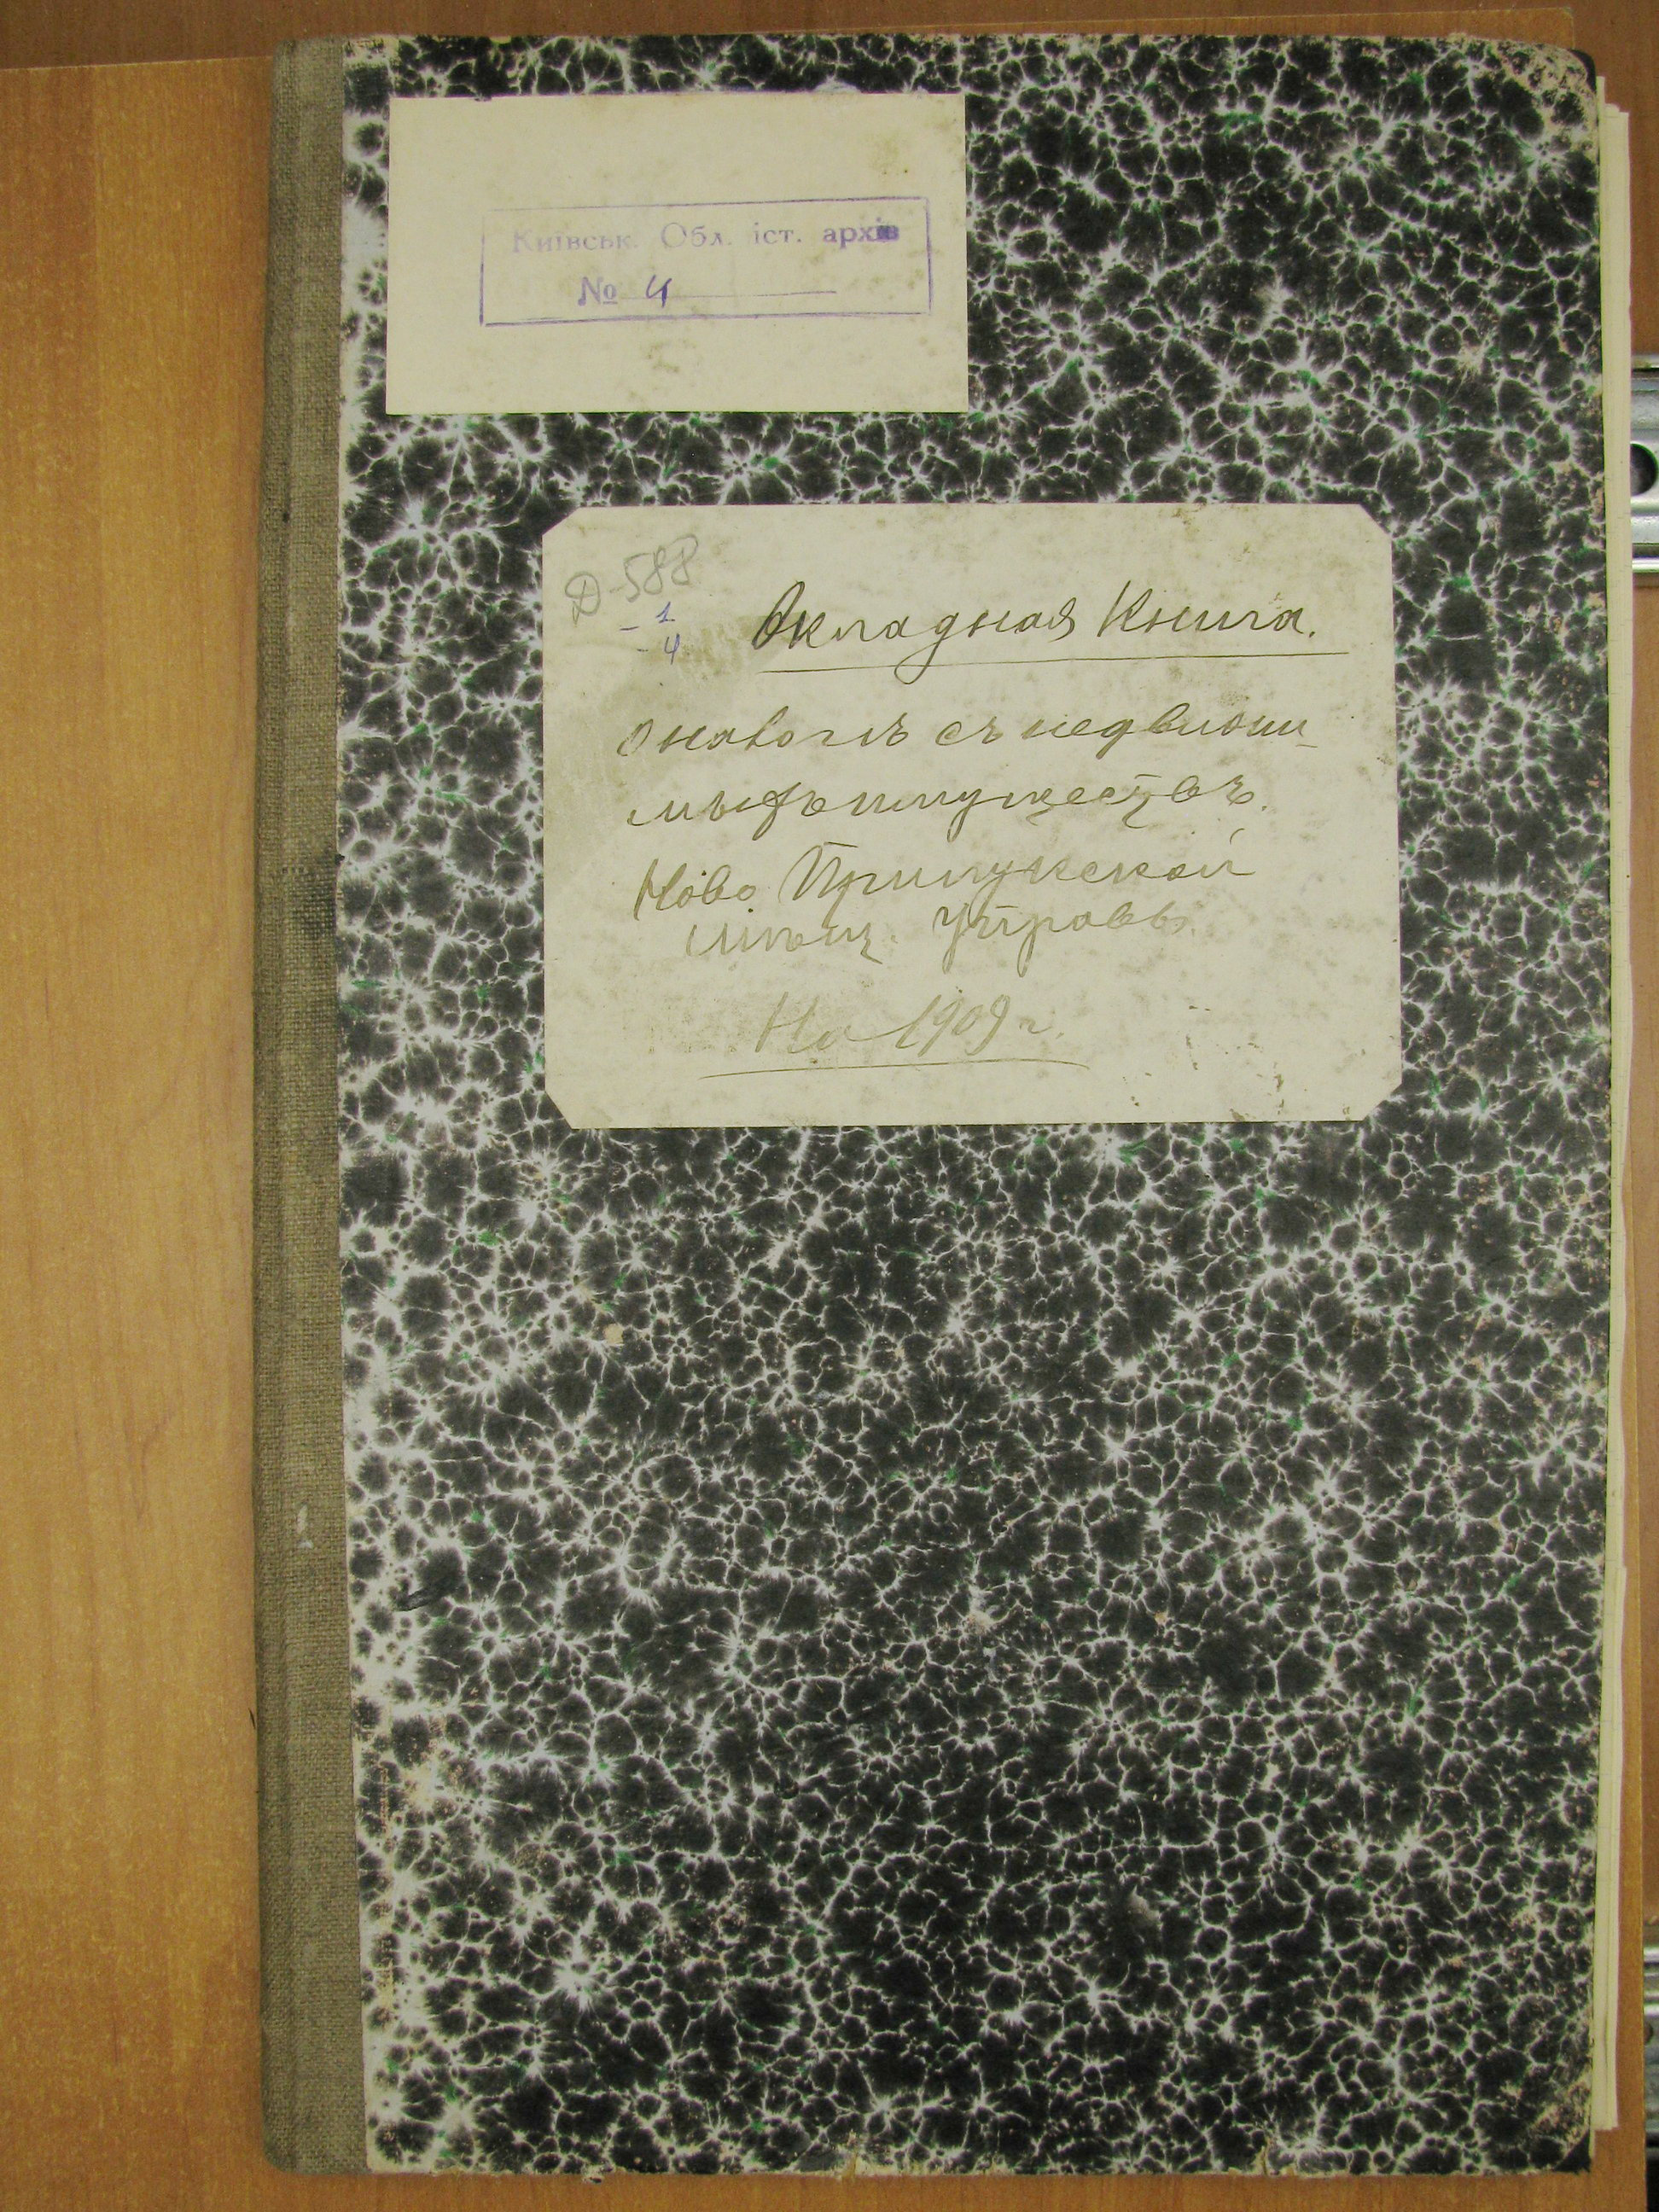 Київськ. Обл. іст. архів
№ 4
Д-588
- 1
- 4
Окладная Книга.
о налогѣ съ недвижи-
мыхъ имуществъ.
Ново Прилукской
мѣщ. Управы.
На 1909 г.